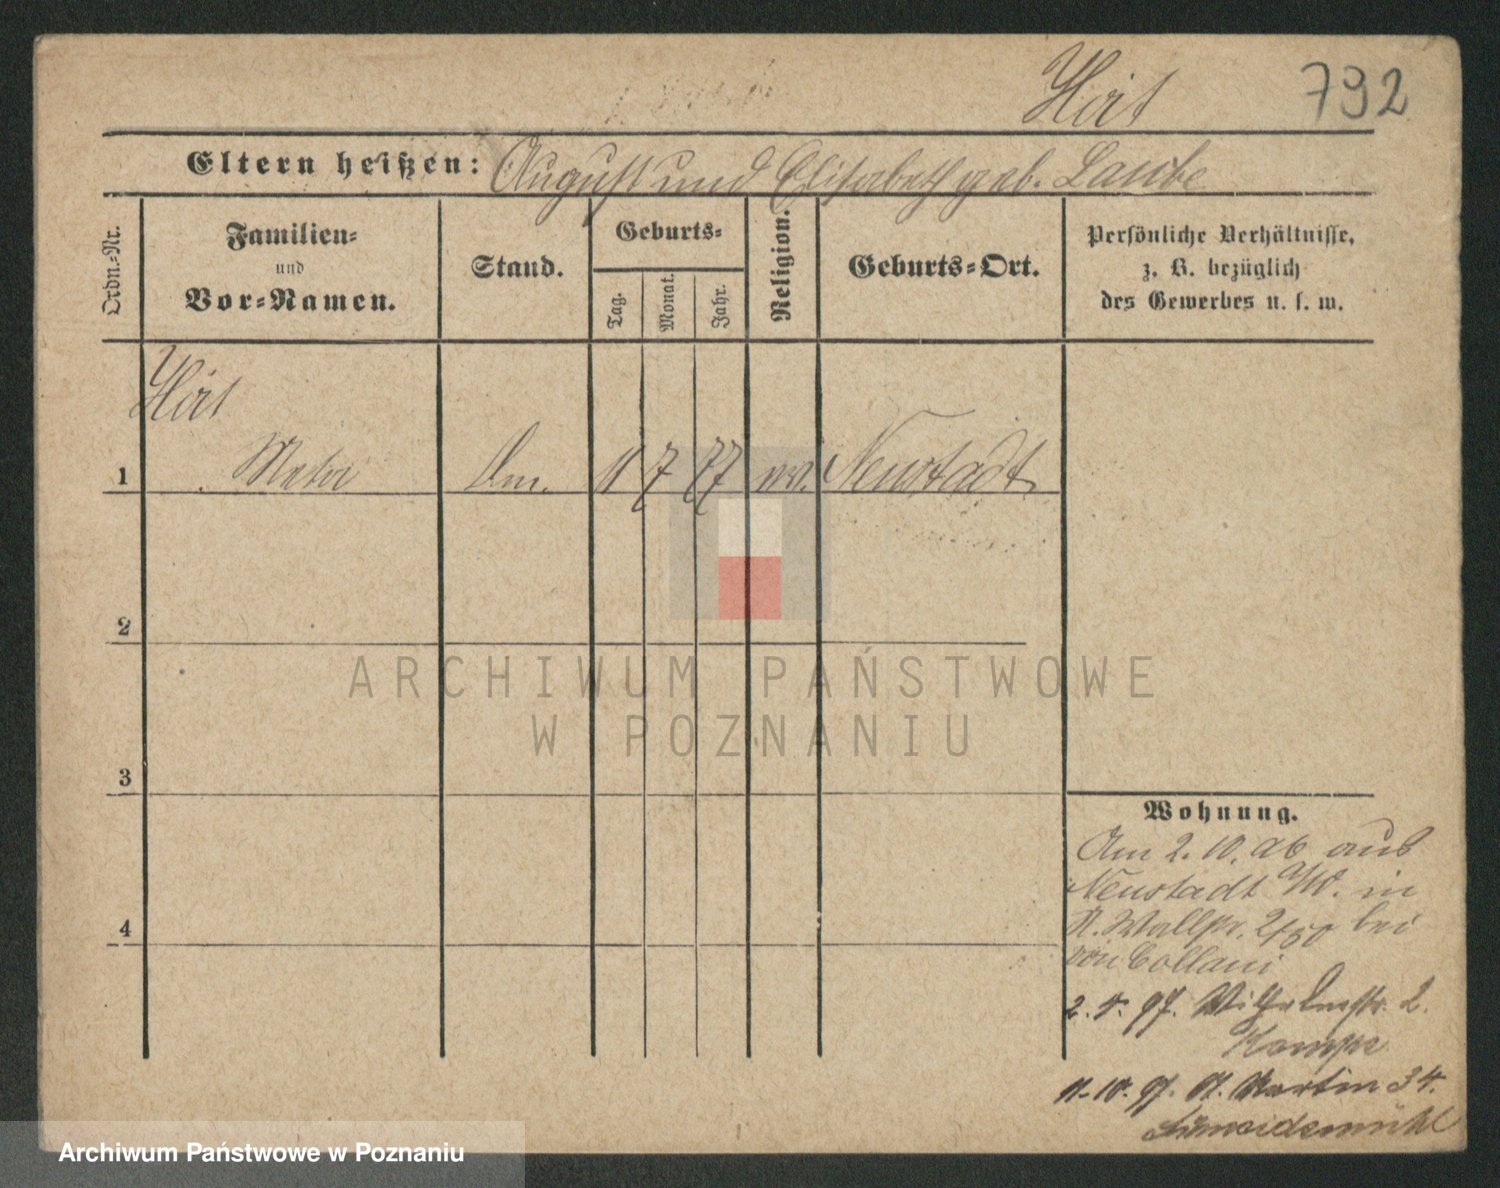 Hirt 792
Eltern heißen: August und Elisabeth geb. Laube
Ordn.-Nr.
Familien-
und
Vor-Namen.
Stand.
Geburts-
Tag.
Monat.
Jahr.
Religion.
Geburts-Ort.
Persönliche Verhältnisse,
z. B. bezüglich
des Gewerbes u. s. w.
Hirt
1 Meta 11 7 77 ev. Neustadt
2
3
4
Wohnung.
Am 2. 10. 96 aus
Neustadt W. in
Wallstr. bei
von Collani
2. 4. 97. Wilhelmstr. 2.
11. 10. 97. St. Martin 34.
Schneidemühl
ARCHIWUM PAŃSTWOWE
W POZNANIU
Archiwum Państwowe w Poznaniu